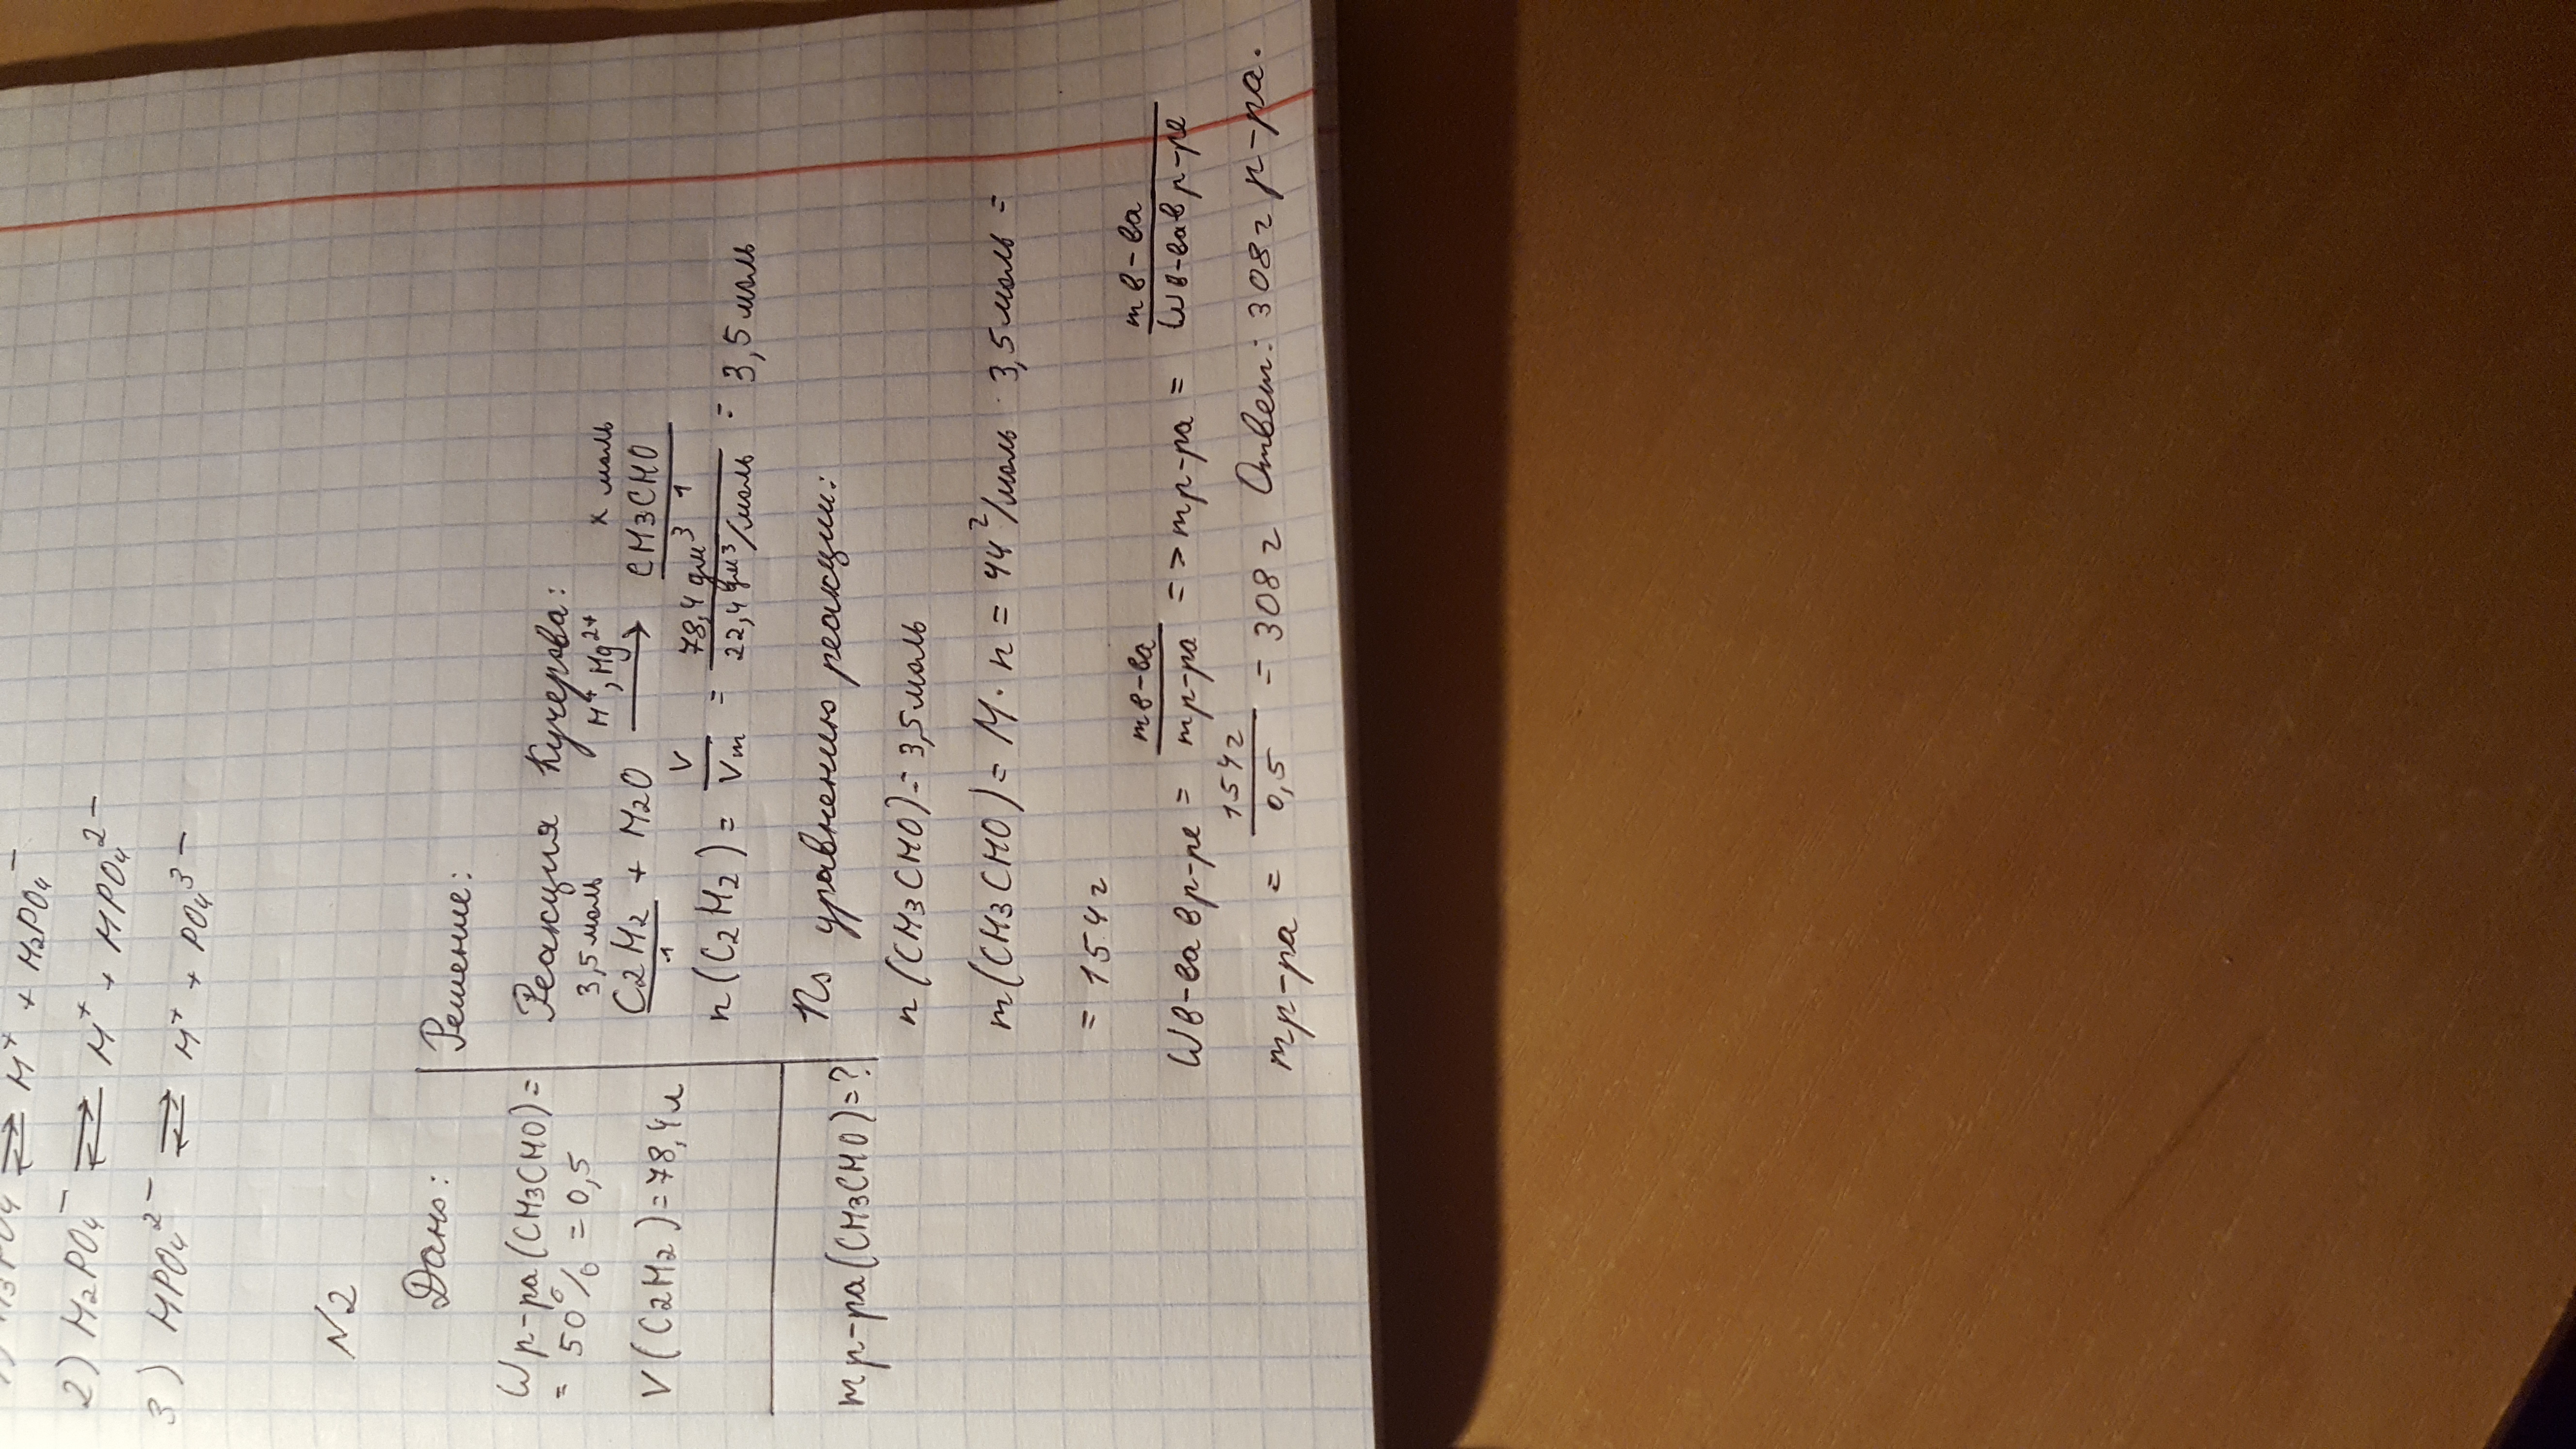 ⇄ H⁺ + H₂PO₄⁻
2) H₂PO₄⁻ ⇄ H⁺ + HPO₄²⁻
3) HPO₄²⁻ ⇄ H⁺ + PO₄³⁻
N2
Дано:
Wр-ра(CH₃CHO)=
= 50% = 0,5
V(C₂H₂)=78,4л
mр-ра(CH₃CHO)=?
Решение:
Реакция Кучерова:
3,5 моль H⁺, Hg²⁺ x моль
C₂H₂ + H₂O → CH₃CHO
1 1
n(C₂H₂) = V/Vm = 78,4 дм³/22,4 дм³/моль = 3,5 моль
По уравнению реакции:
n(CH₃CHO)= 3,5 моль
m(CH₃CHO) = M · n = 44 г/моль · 3,5 моль =
= 154 г
Wв-ва в р-ре = mв-ва/mр-ра => mр-ра = mв-ва/Wв-ва в р-ре
mр-ра = 154 г/0,5 = 308 г Ответ: 308 г р-ра.